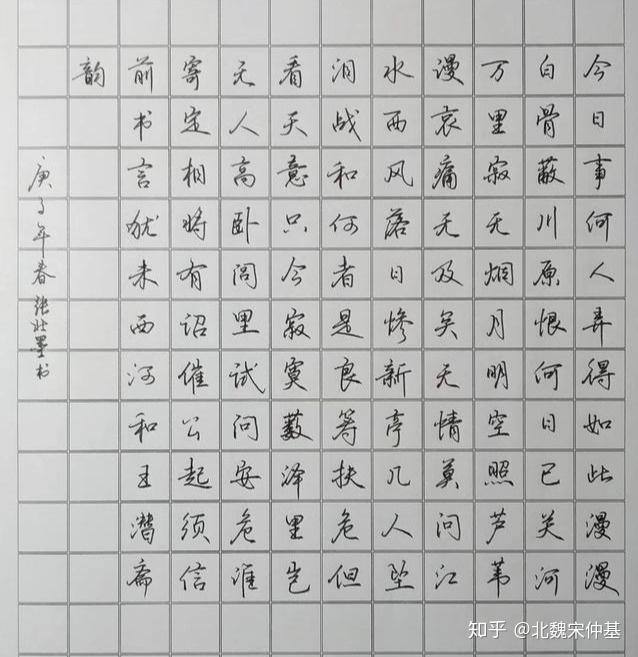 今日事何人弄得如此漫漫
白骨蔽川原恨何日已关河
万里寂无烟月明空照芦苇
谩哀痛无及矣无情莫问江
水西风落日惨新亭几人坠
泪战和何者是良筹扶危但
看天意只今寂寞薮泽里岂
无人高卧闾里试问安危谁
寄定相将有诏催公起须信
前书言犹未西河和王潜斋
韵
庚子年春张壮墨书
知乎 @北魏宋仲基